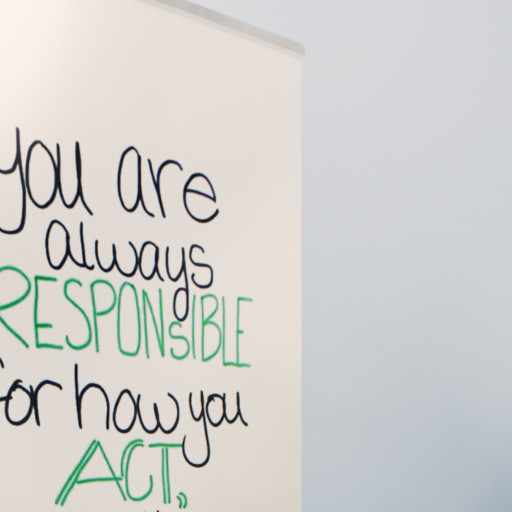 you are
always
RESPONSIBLE
for how you
ACT.